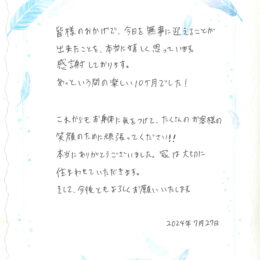 皆様のおかげで、今日を無事に迎えることが
出来たことを、本当に嬉しく思っています。
感謝しております。
あっという間の楽しい10ヶ月でした!
これからもお身体に気をつけて、たくさんのお客様の
笑顔のために頑張ってください!!
本当にありがとうございました。家は大切に
住まわせていただきます。
そして、今後ともよろしくお願いいたします
2024年7月27日